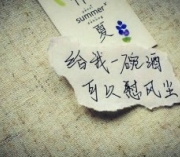 summer
夏
给我一碗酒
可以慰风尘